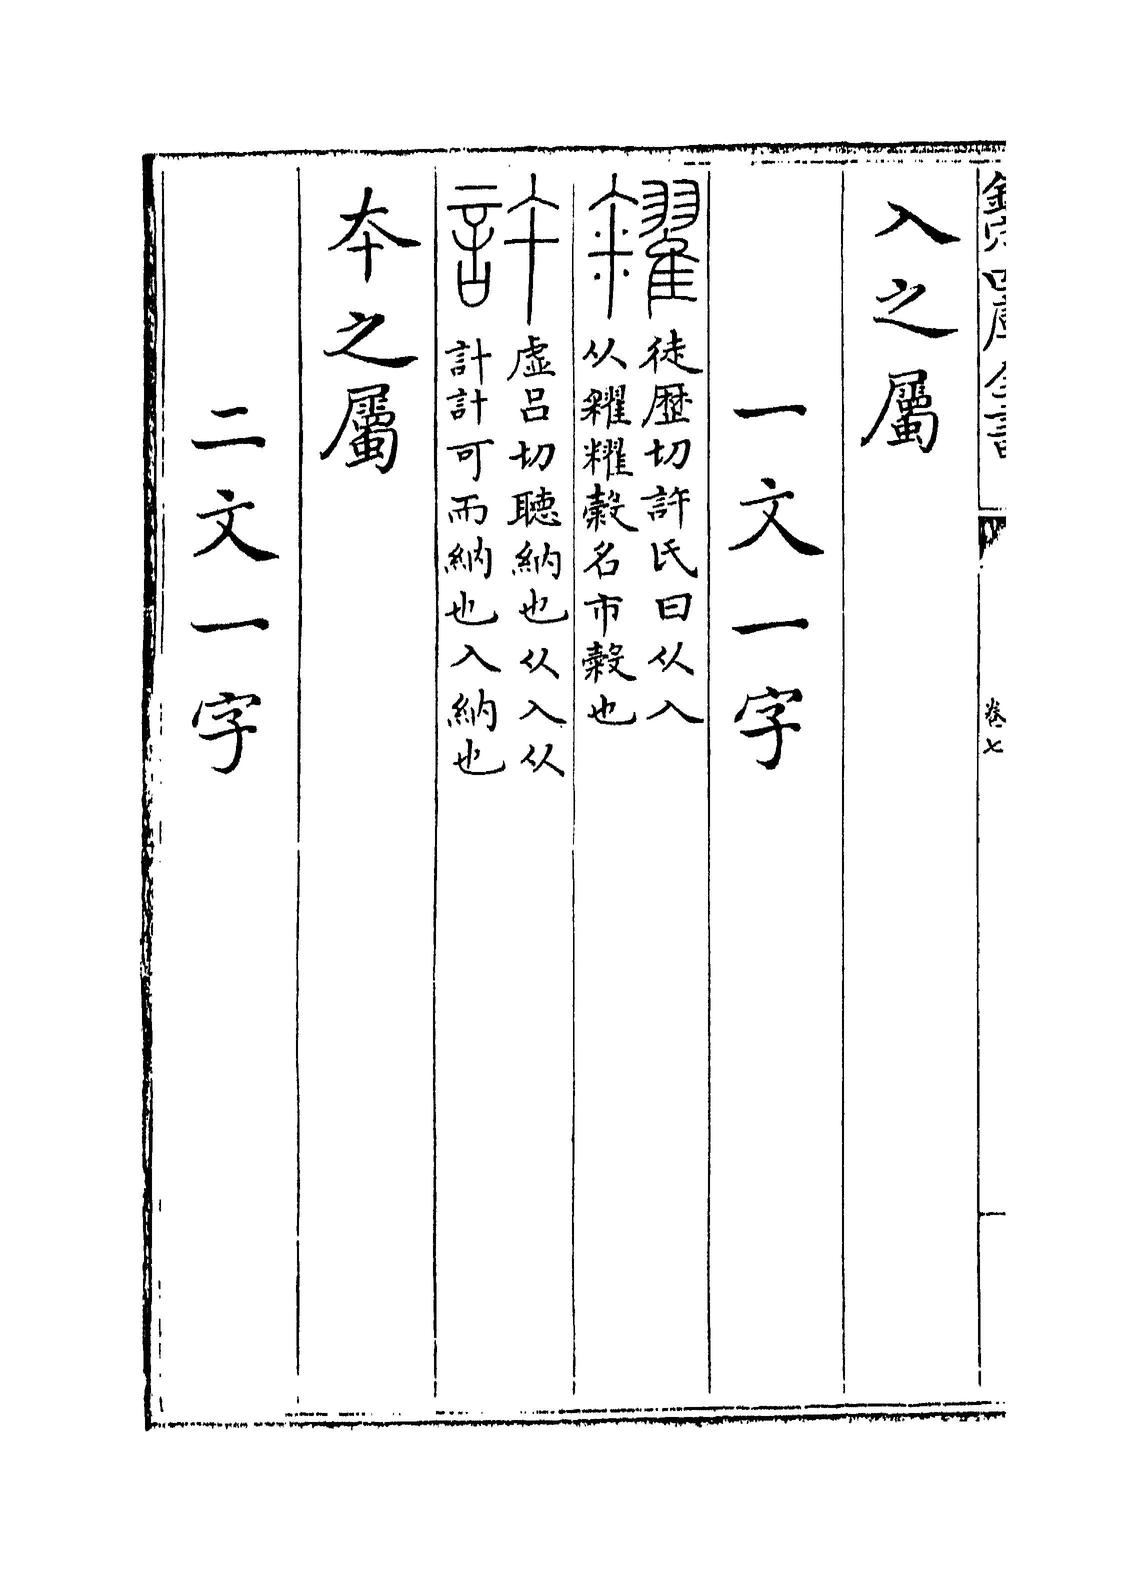 欽定四庫全書
卷七
入之屬
一文一字
糴
徒歴切許氏曰从入
从糴𥼚穀名市穀也
許
虚呂切聽納也从入从
計計可而納也入納也
夲之屬
二文一字